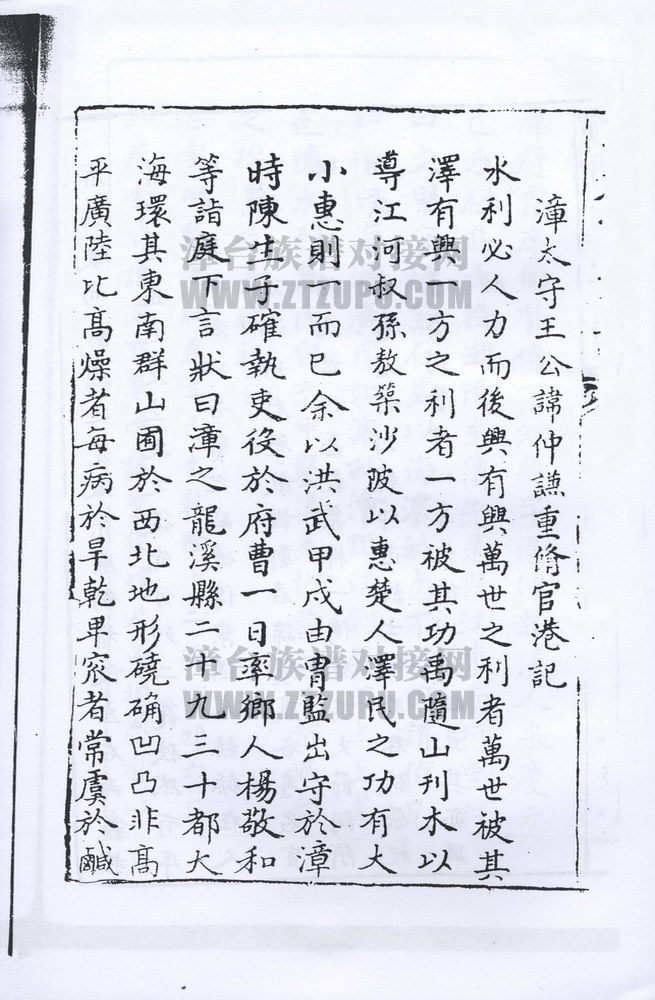 漳太守王公諱仲謙重脩官港記
水利必人力而後興有興萬世之利者萬世被其
澤有興一方之利者一方被其功禹隨山刋木以
導江河叔孫敖築沙陂以惠楚人澤民之功有大
小惠則一而已余以洪武甲戌由胄監出守於漳
時陳生子確執吏役於府曹一日率鄉人楊敬和
等詣庭下言狀曰漳之龍溪縣二十九三十都大
海環其東南群山圃於西北地形磽确凹凸非高
平廣陸比高燥者每病於旱乾卑窊者常虞於鹹
漳台族谱对接网
WWW.ZTZUPU.COM
漳台族谱对接网
WWW.ZTZUPU.COM